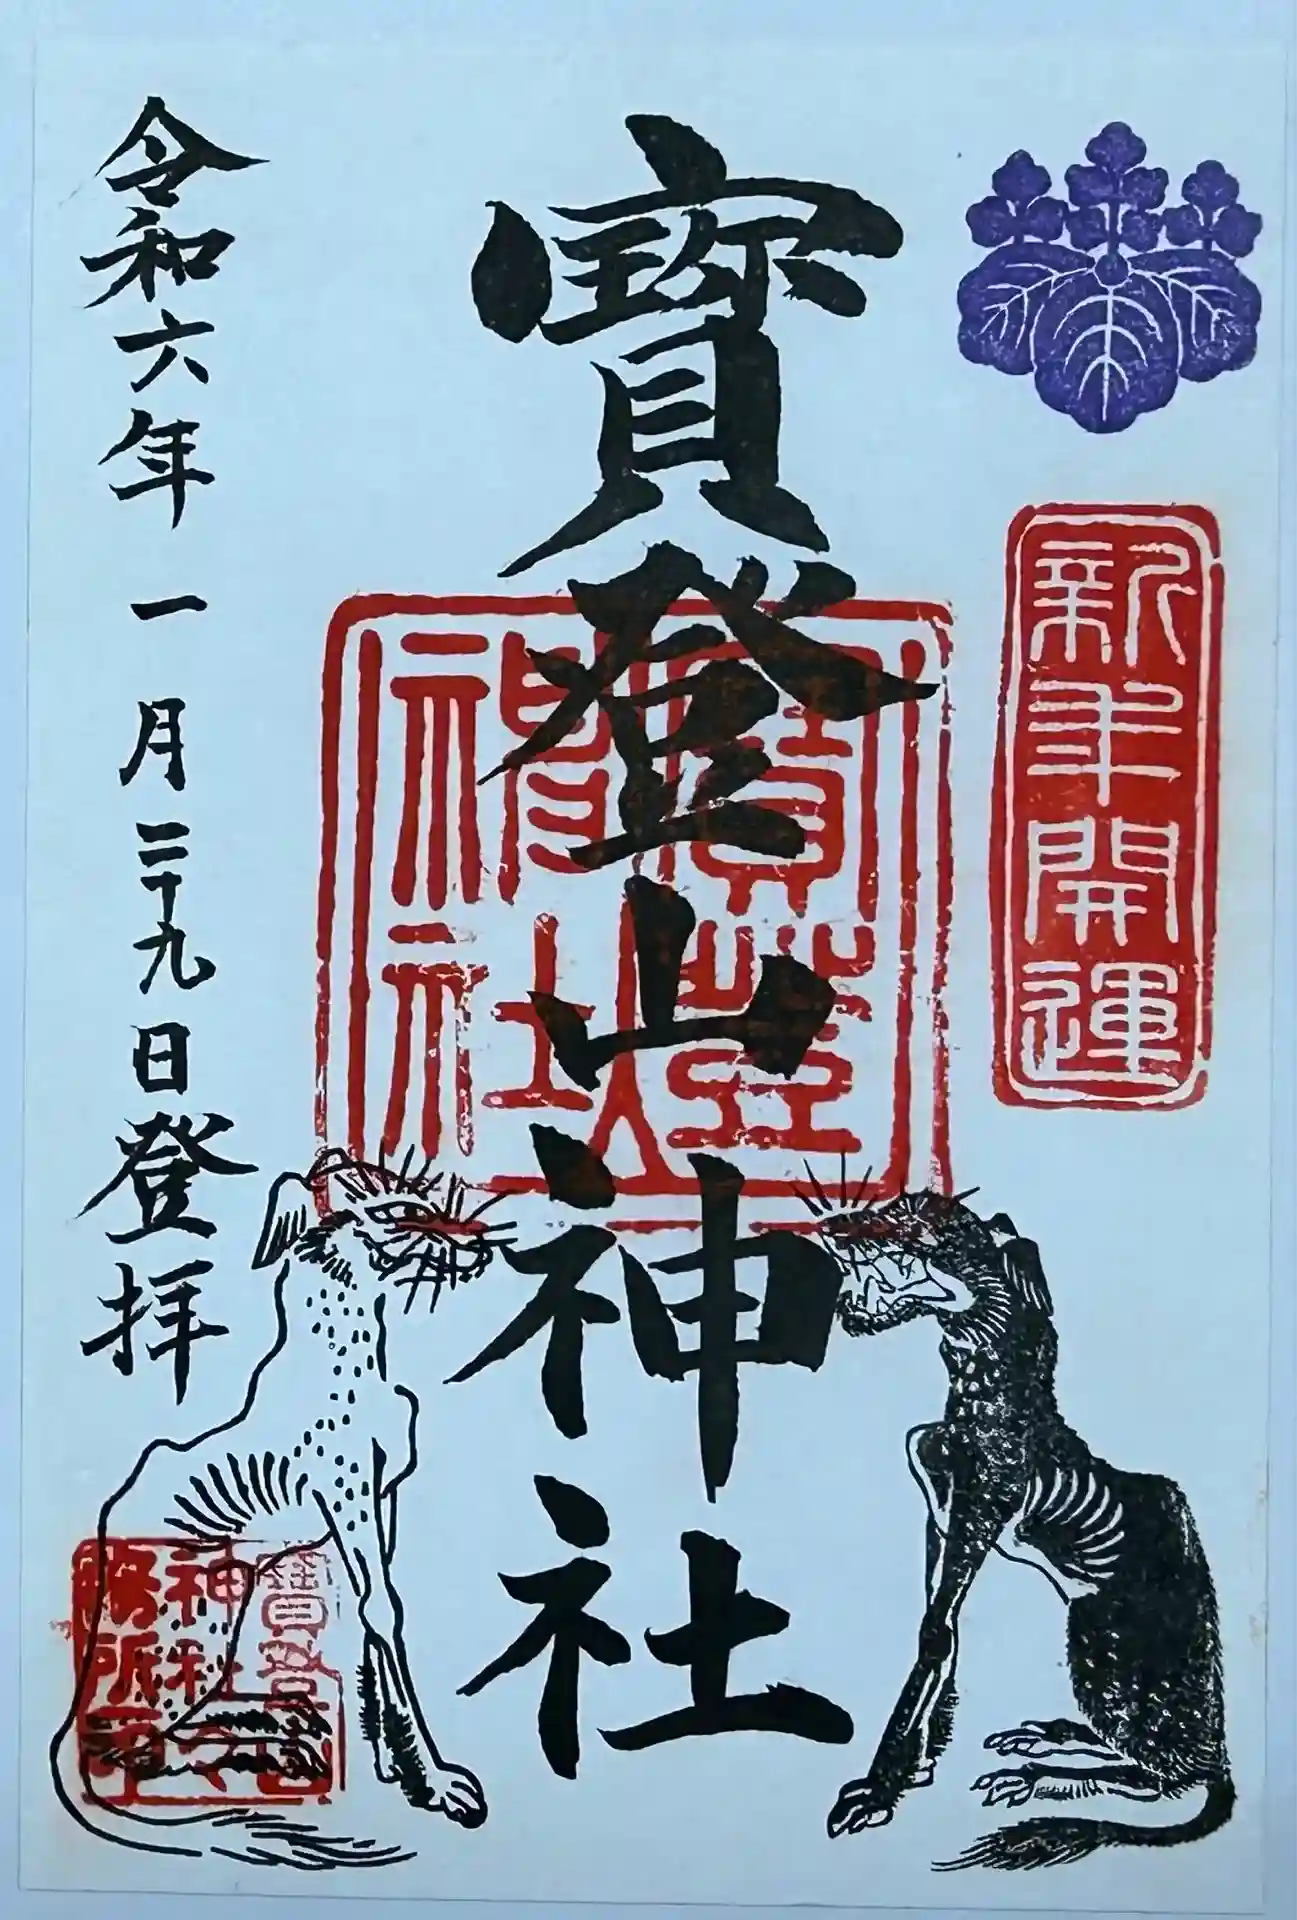 新年開運
寶登山神社
寶登山
神社
令和六年一月二十九日登拝
寶登山
神社
務所印